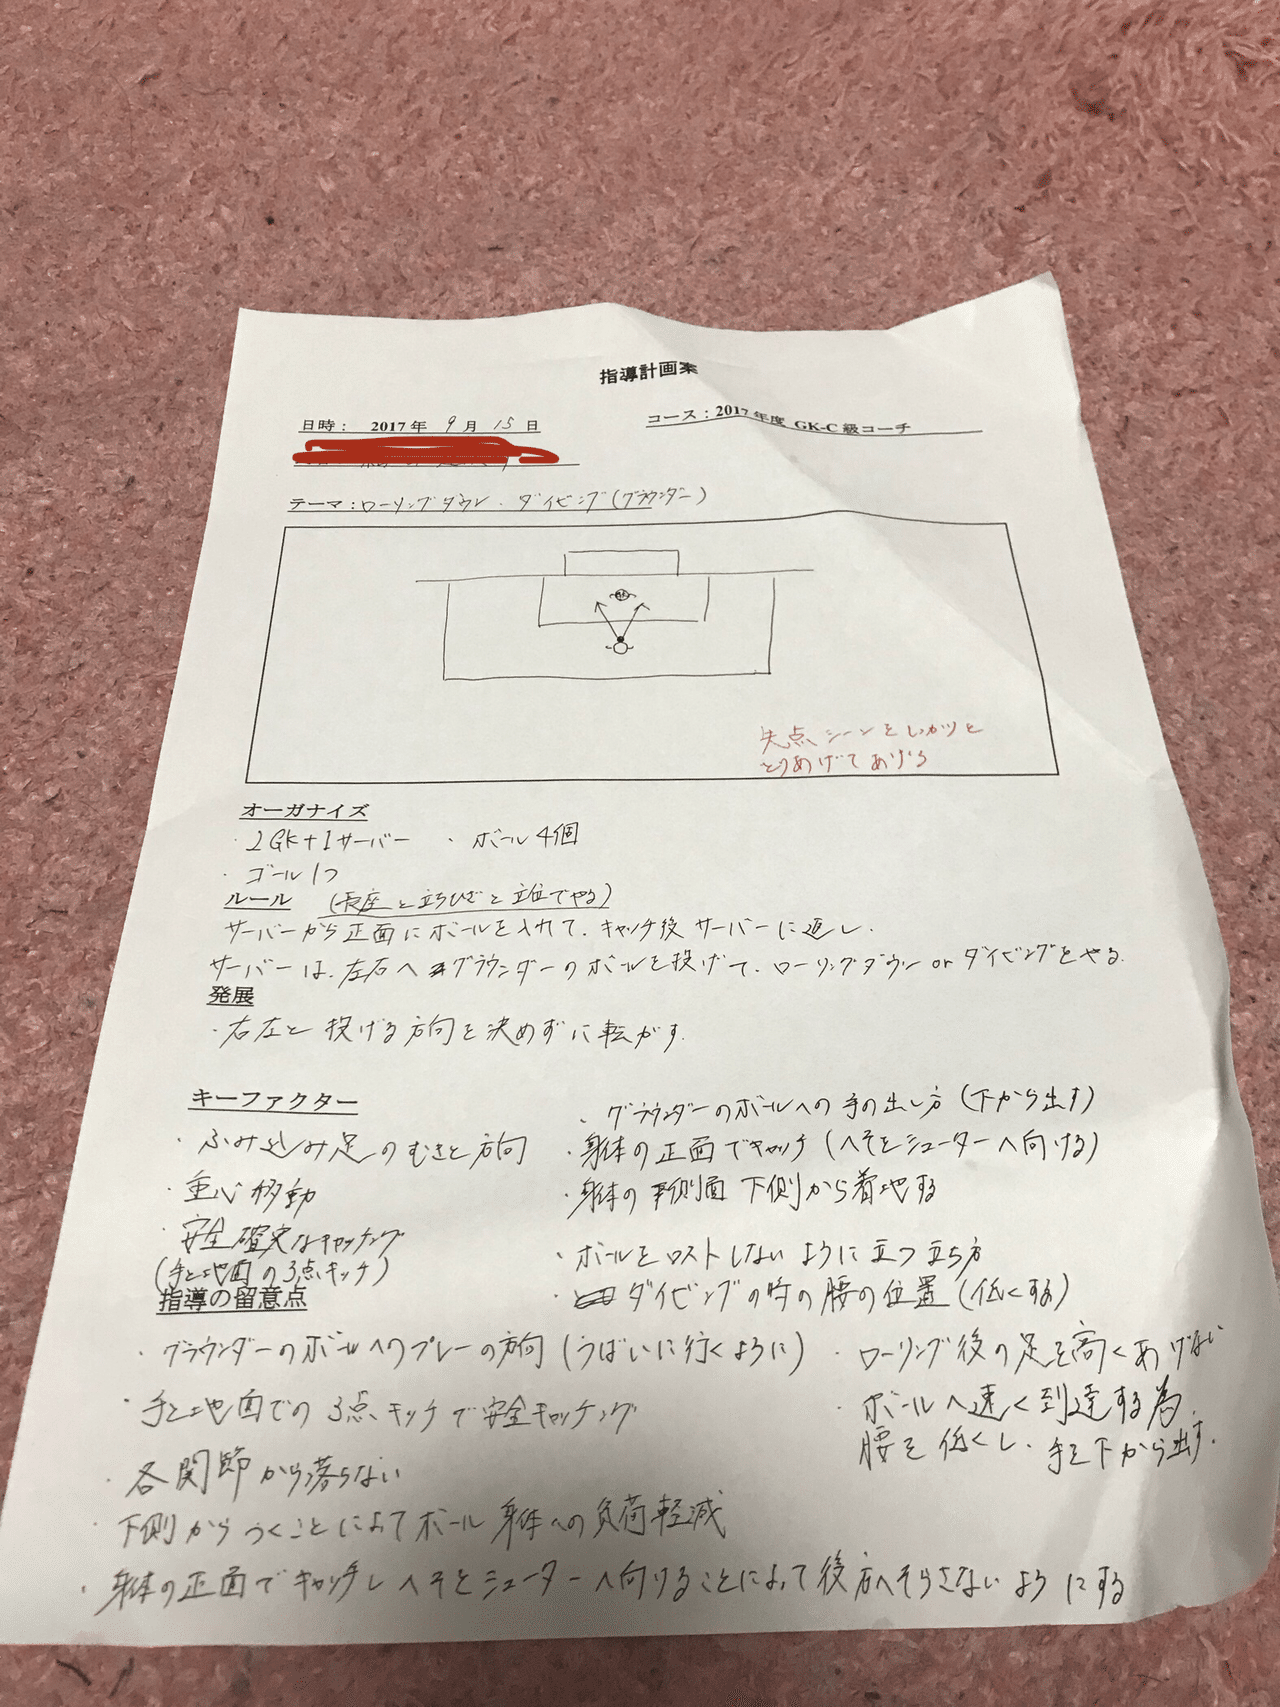 指導計画案
日時： 2017年 9月 15日
コース：2017年度 GK-C級コーチ
テーマ：ローリングダウン・ダイビング(グラウンダー)
GK
失点シーンをしっかりと
とりあげてあげる
オーガナイズ
・2GK+1サーバー ・ボール4個
・ゴール1つ
ルール (長座と立ちひざと立位でやる)
サーバーから正面にボールを入れて、キャッチ後サーバーに返し、
サーバーは、左右へグラウンダーのボールを投げて、ローリングダウンorダイビングをやる。
発展
・右左と投げる方向を決めずに転がす。
キーファクター
・ふみ込み足のむきと方向
・重心移動
・安全確実なキャッチング
(手と地面の3点キャッチ)
・グラウンダーのボールへの手の出し方(下から出す)
・身体の正面でキャッチ(へそをシューターへ向ける)
・身体の側面下側から着地する
・ボールをロストしないように立つ立ち方
・ダイビングの時の腰の位置(低くする)
指導の留意点
・グラウンダーのボールへのプレーの方向(うばいに行くように)
・手と地面での3点キャッチで安全キャッチング
・各関節から落らない
・下側からつくことによってボール身体への負荷軽減
・身体の正面でキャッチしへそをシューターへ向けることによって後方へそらさないようにする
・ローリング後の足を高くあげない
・ボールへ速く到達する為、
腰を低くし、手を下から出す。